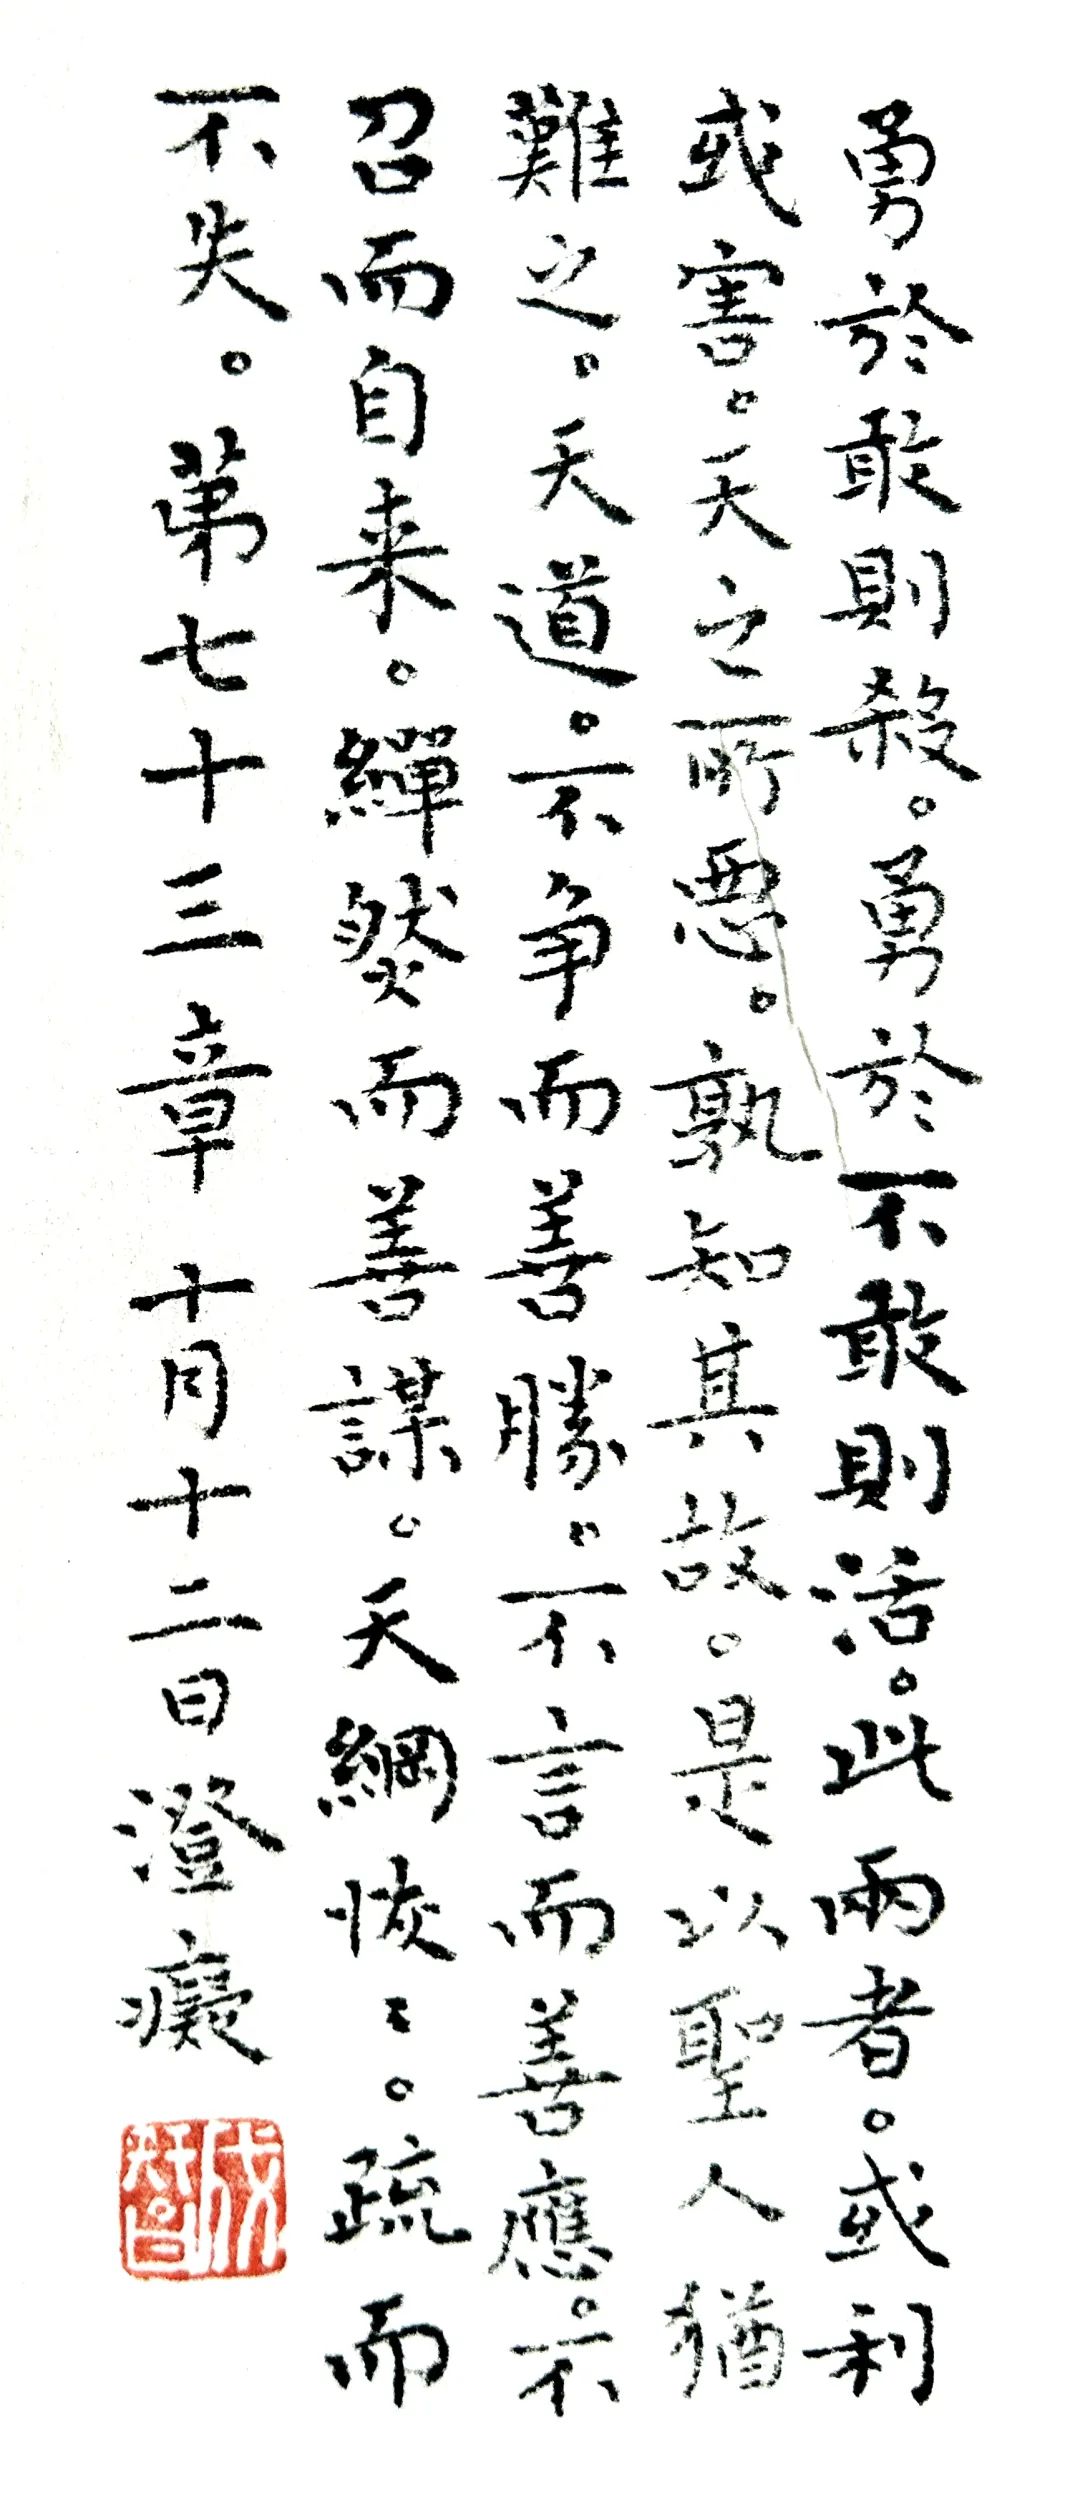 勇於敢則殺。勇於不敢則活。此兩者。或利
或害。天之所惡。孰知其故。是以聖人猶
難之。天道。不争而善勝。不言而善應。不
召而自来。繟然而善謀。天網恢〻。疏而
不失。第七十三章 十月十二日澄癡